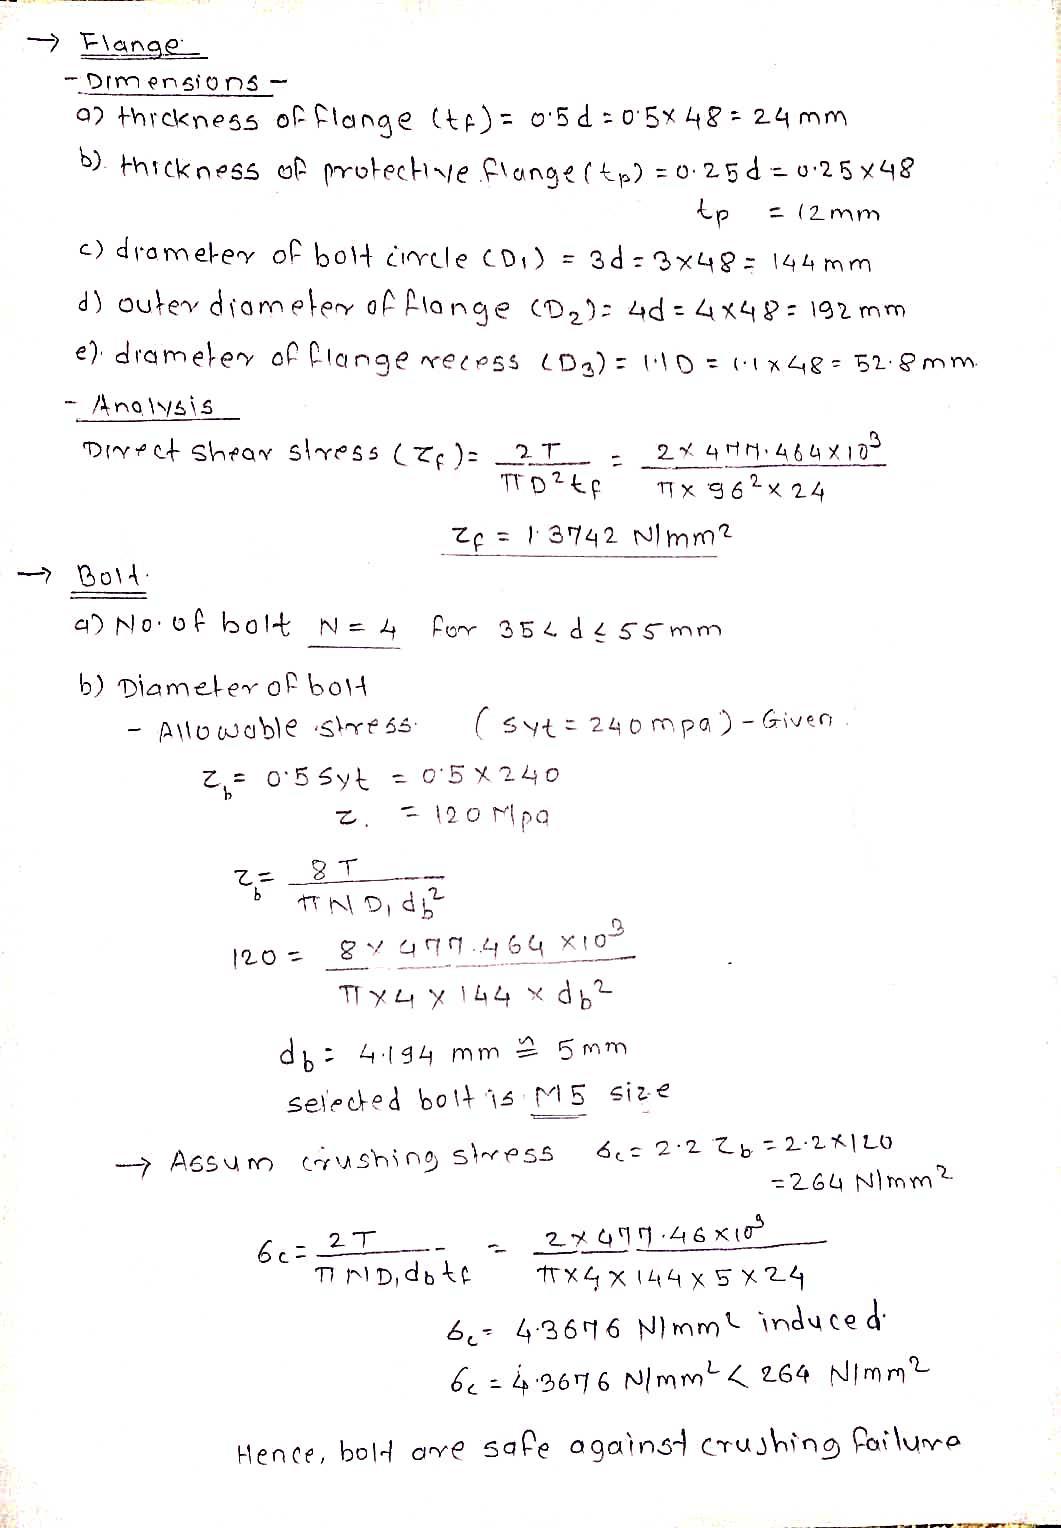 → Flange
- Dimensions -
a) thickness of flange (tf) = 0.5d = 0.5 × 48 = 24 mm
b). thickness of protective flange (tp) = 0.25d = 0.25 × 48
tp = 12mm
c) diameter of bolt circle (D1) = 3d = 3×48 = 144 mm
d) outer diameter of flange (D2) = 4d = 4×48 = 192 mm
e). diameter of flange recess (D3) = 1.1D = 1.1 × 48 = 52.8 mm.
- Analysis
Direct shear stress (τf) = 2T / πD²tf = 2 × 477.464 × 10³ / π × 96² × 24
τf = 1.3742 N/mm²
→ Bolt.
a) No. of bolt N = 4 for 35 < d ≤ 55 mm
b) Diameter of bolt
- Allowable stress. (Syt = 240 mpa) - Given.
τb = 0.5 Syt = 0.5 × 240
τ. = 120 Mpa
τb = 8T / πND1db²
120 = 8 × 477.464 × 10³ / π × 4 × 144 × db²
db = 4.194 mm ≅ 5 mm
selected bolt is M5 size
→ Assum crushing stress σc = 2.2 τb = 2.2 × 120
= 264 N/mm²
σc = 2T / πND1dbtf = 2 × 477.46 × 10³ / π × 4 × 144 × 5 × 24
σc = 4.3676 N/mm² induced.
σc = 4.3676 N/mm² < 264 N/mm²
Hence, bolt are safe against crushing failure